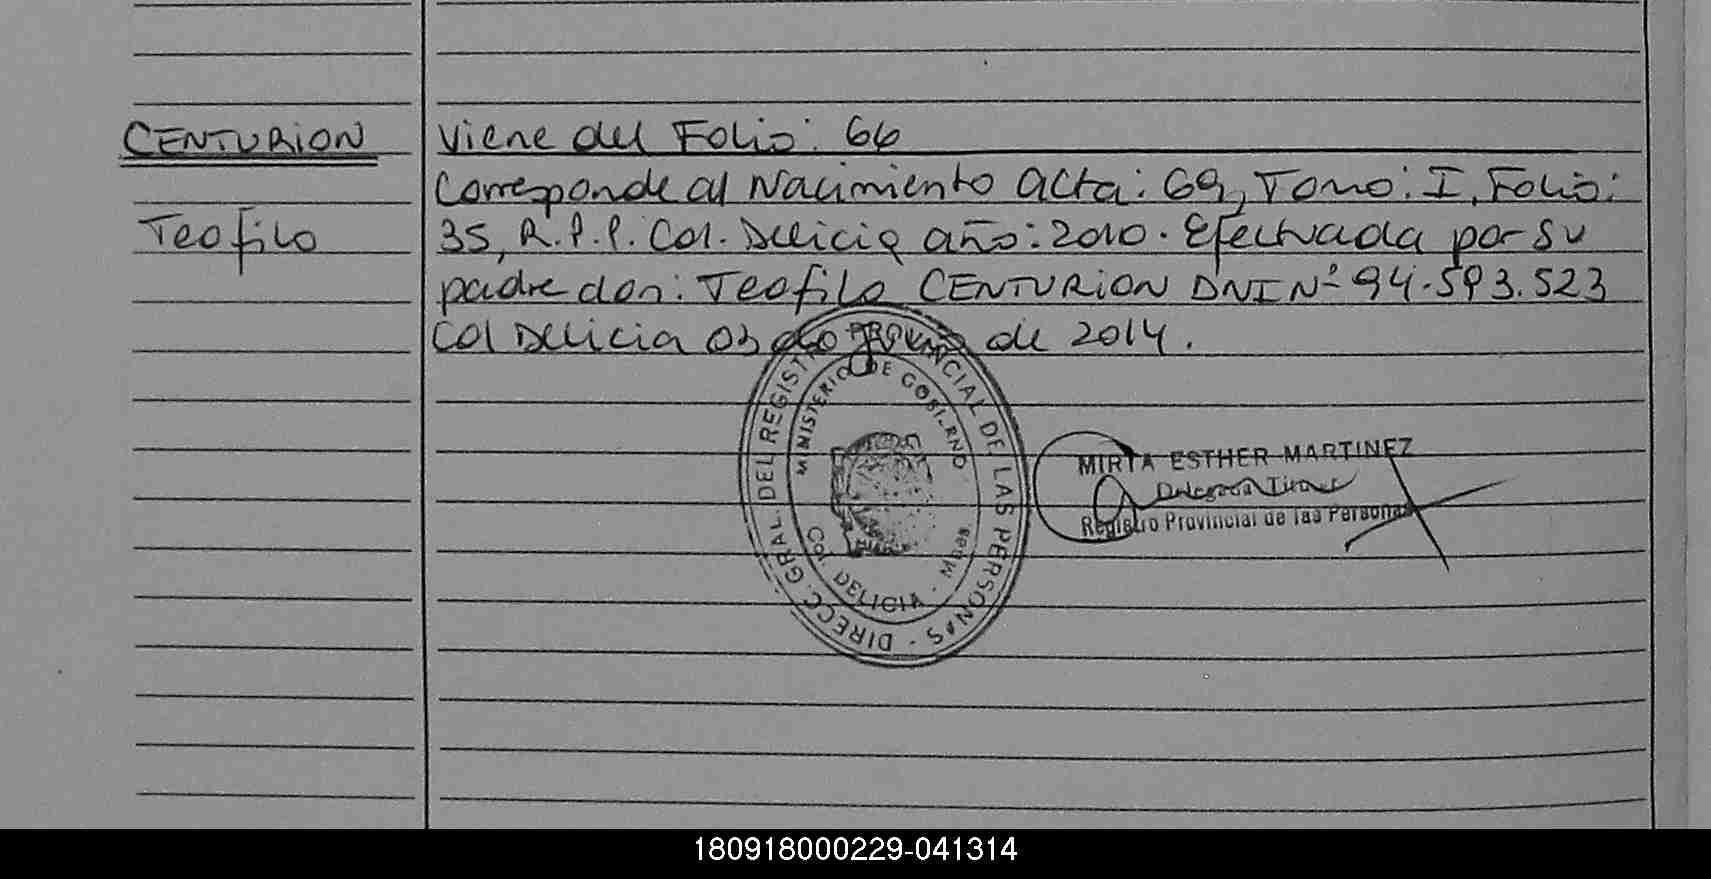 CENTURION
Teofilo
Viene del Folio: 66
Corresponde al Nacimiento acta: 69, Tomo: I, Folio:
35, R.P.P. Col. Delicia año: 2010. Efectuada por su
padre don: Teofilo CENTURION DNI Nº 94.593.523
Col Delicia 03 de de 2014.
DIRECC. GRAL. DEL REGISTRO PROVINCIAL DE LAS PERSONAS -
MINISTERIO DE GOBIERNO
COL. DELICIA - Mnes
MIRTA ESTHER MARTINEZ
Delegada Titular
Registro Provincial de las Personas
180918000229-041314